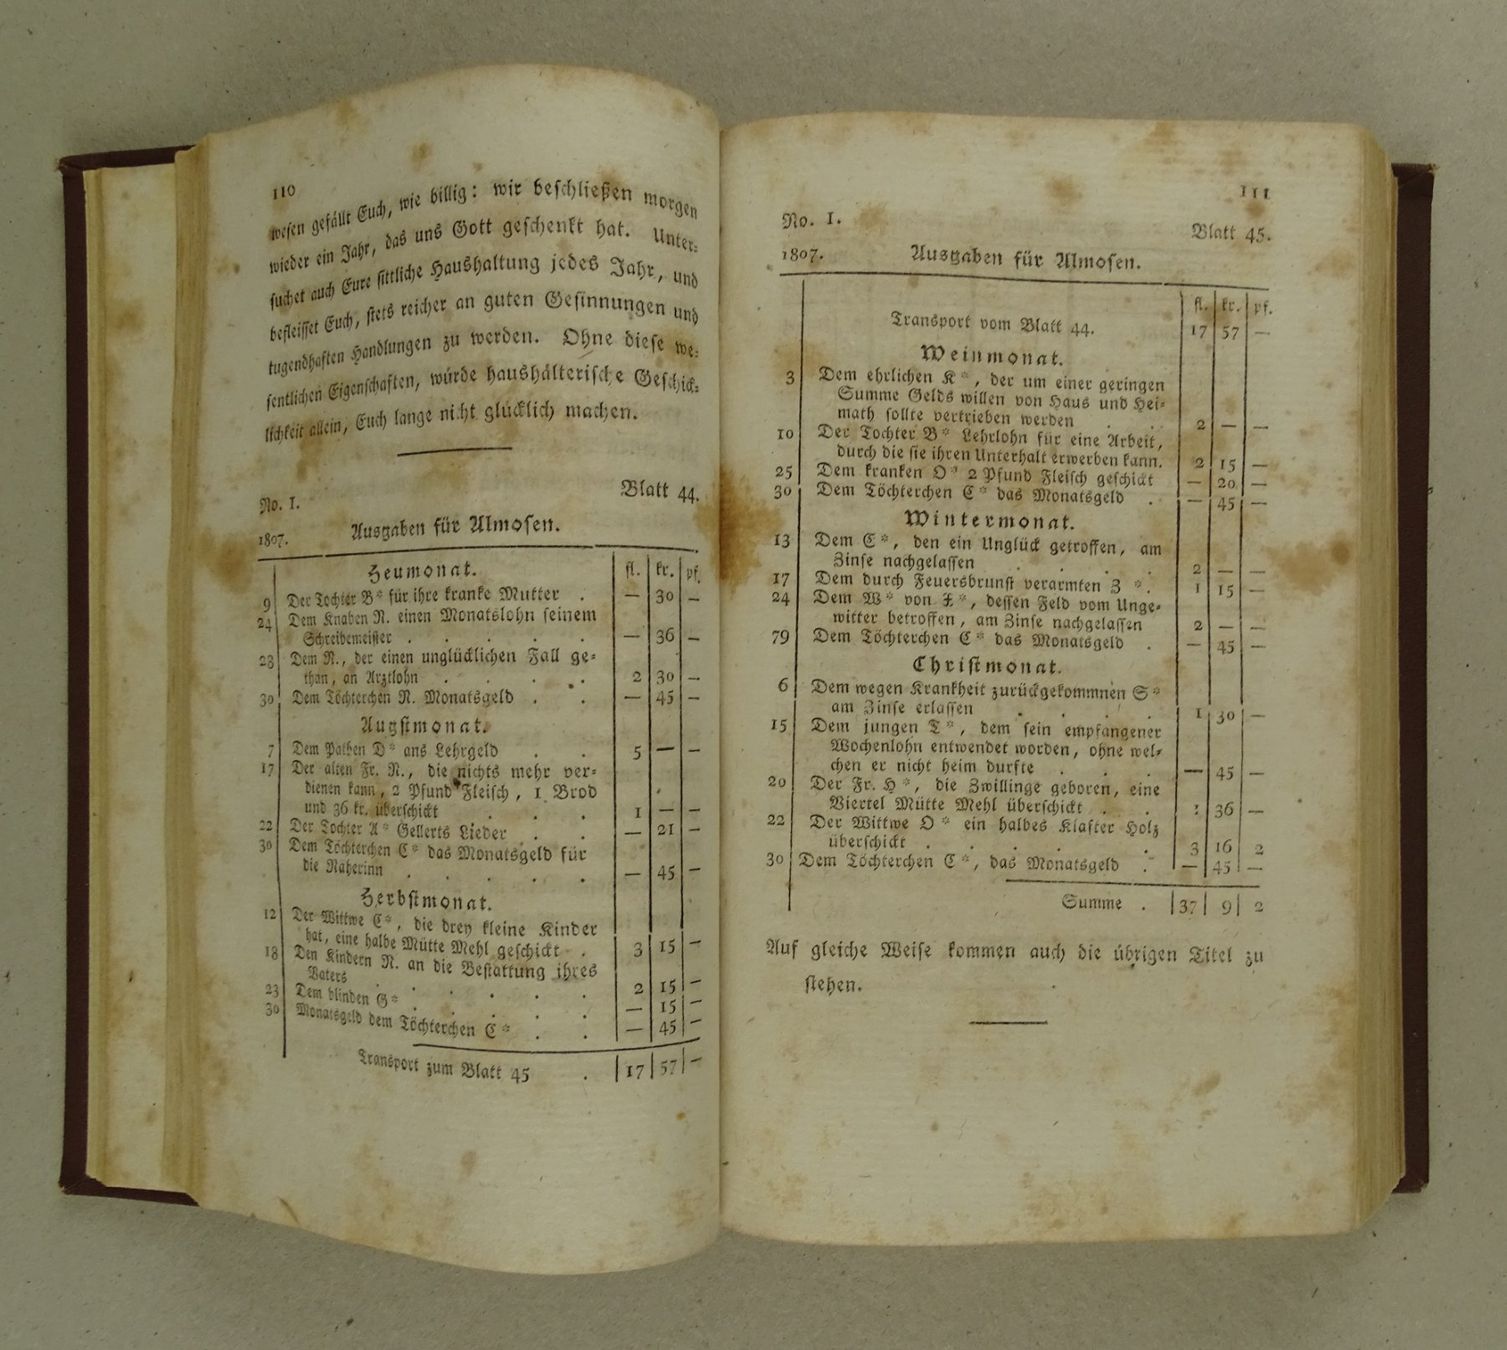 110
wesen gefällt Euch, wie billig: wir beschließen morgen
wieder ein Jahr, das uns Gott geschenkt hat. Unter⸗
suchet auch Eure sittliche Haushaltung jedes Jahr, und
befleisset Euch, stets reicher an guten Gesinnungen und
tugendhaften Handlungen zu werden. Ohne diese we⸗
sentlichen Eigenschaften, würde haushälterische Geschick⸗
lichkeit allein, Euch lange nicht glücklich machen.
No. I. Blatt 44.
1807. Ausgaben für Almosen.
Heumonat. fl. kr. pf.
9 Der Tochter B* für ihre kranke Mutter . — 30 —
24 Dem Knaben R. einen Monatslohn seinem
Schreibemeister . . . . . — 36 —
23 Dem N., der einen unglücklichen Fall ge⸗
than, an Arztlohn . . . . 2 30 —
30 Dem Töchterchen N. Monatsgeld . . — 45 —
Augstmonat.
7 Dem Pathen D* ans Lehrgeld . . 5 — —
17 Der alten Fr. N., die nichts mehr ver⸗
dienen kann, 2 Pfund Fleisch, 1 Brod
und 36 kr. überschickt . . . 1 — —
22 Der Tochter A* Gellerts Lieder . . — 21 —
30 Dem Töchterchen C* das Monatsgeld für
die Näherinn . . . . . — 45 —
Herbstmonat.
12 Der Wittwe C*, die drey kleine Kinder
hat, eine halbe Mütte Mehl geschickt . 3 15 —
18 Den Kindern N. an die Bestattung ihres
Vaters . . . . . 2 15 —
23 Dem blinden G* . . . . — 15 —
30 Monatsgeld dem Töchterchen C* . . — 45 —
Transport zum Blatt 45 . 17 57 —
111
No. I. Blatt 45.
1807. Ausgaben für Almosen.
fl. kr. pf.
Transport vom Blatt 44. 17 57 —
Weinmonat.
3 Dem ehrlichen K*, der um einer geringen
Summe Gelds willen von Haus und Hei⸗
math sollte vertrieben werden . . 2 — —
10 Der Tochter B* Lehrlohn für eine Arbeit,
durch die sie ihren Unterhalt erwerben kann. 2 15 —
25 Dem kranken O* 2 Pfund Fleisch geschickt — 20 —
30 Dem Töchterchen C* das Monatsgeld . — 45 —
Wintermonat.
13 Dem C*, den ein Unglück getroffen, am
Zinse nachgelassen . . . . 2 — —
17 Dem durch Feuersbrunst verarmten Z *. 1 15 —
24 Dem W* von X*, dessen Feld vom Unge⸗
witter betroffen, am Zinse nachgelassen 2 — —
79 Dem Töchterchen C* das Monatsgeld . — 45 —
Christmonat.
6 Dem wegen Krankheit zurückgekommnen S*
am Zinse erlassen . . . . 1 30 —
15 Dem jungen T*, dem sein empfangener
Wochenlohn entwendet worden, ohne wel⸗
chen er nicht heim durfte . . . — 45 —
20 Der Fr. H*, die Zwillinge geboren, eine
Viertel Mütte Mehl überschickt . . 1 36 —
22 Der Wittwe O* ein halbes Klafter Holz
überschickt . . . . . 3 16 2
30 Dem Töchterchen C*, das Monatsgeld . — 45 —
Summe . 37 9 2
Auf gleiche Weise kommen auch die übrigen Titel zu
stehen.